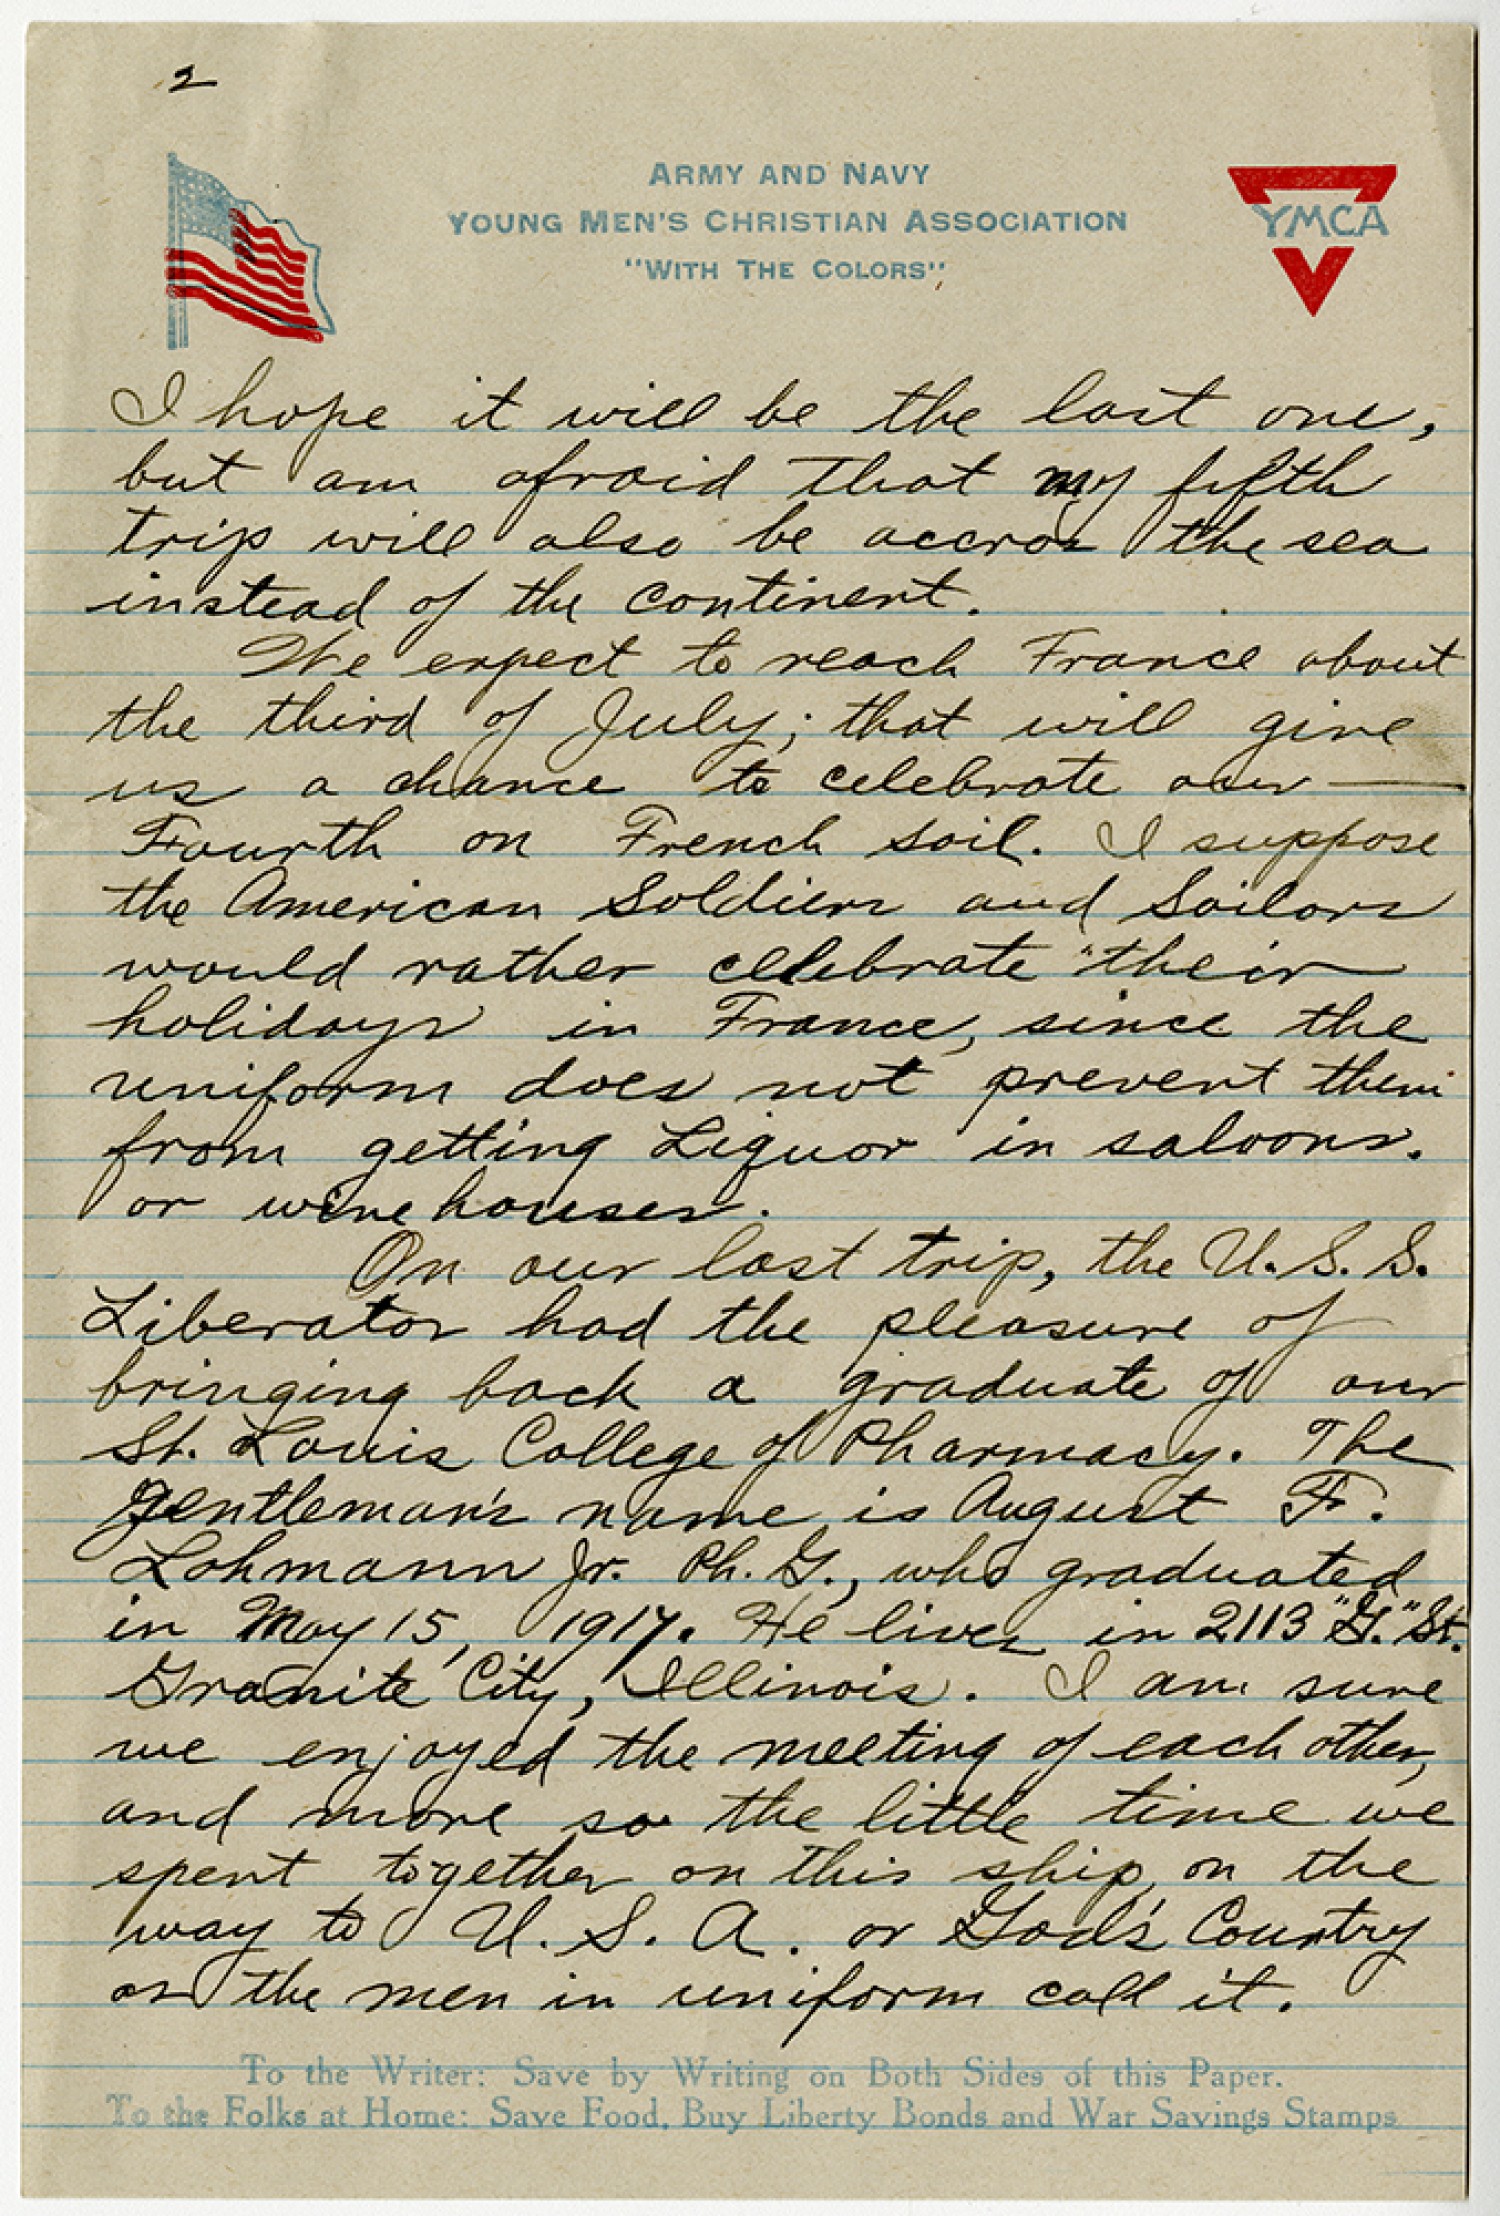 2
ARMY AND NAVY
YOUNG MEN'S CHRISTIAN ASSOCIATION
"WITH THE COLORS"
YMCA
I hope it will be the last one,
but am afraid that my fifth
trip will also be accros the sea
instead of the continent.
We expect to reach France about
the third of July; that will give
us a chance to celebrate our —
Fourth on French soil. I suppose
the American Soldiers and Sailors
would rather celebrate "their
holidays in France, since the
uniform does not prevent them
from getting Liquor in saloons.
or wine houses.
On our last trip, the U.S.S.
Liberator had the pleasure of
bringing back a graduate of our
St. Louis College of Pharmacy. The
gentleman's name is August F.
Lohmann Jr. Ph. G., who graduated
in May 15, 1917. He lives in 2113 "G." St.
Granite City, Illinois. I am sure
we enjoyed the meeting of each other,
and more so the little time we
spent together on this ship on the
way to U. S. A. or God's Country
as the men in uniform call it.
To the Writer: Save by Writing on Both Sides of this Paper.
To the Folks at Home: Save Food, Buy Liberty Bonds and War Savings Stamps